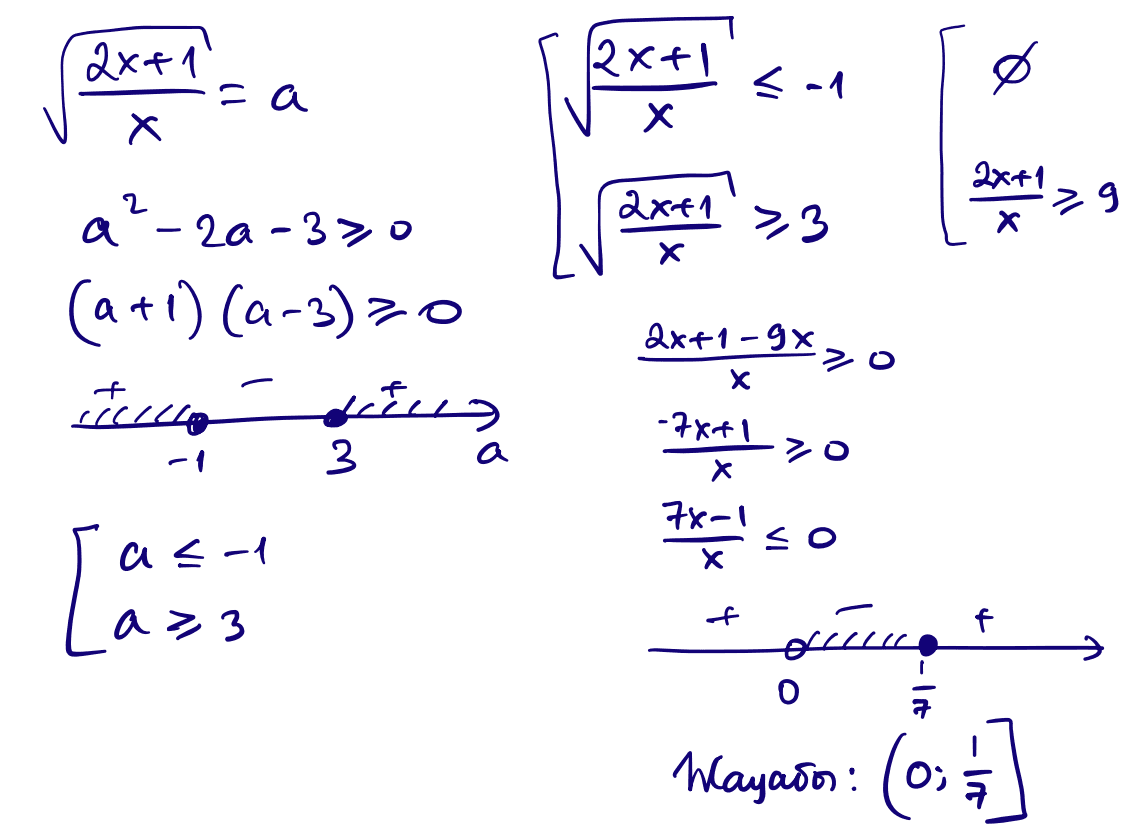 √((2x+1)/x) = a
a² - 2a - 3 ⩾ 0
(a+1) (a-3) ⩾ 0
+ - +
-1 3 a
[ a ≤ -1
a ⩾ 3
[ √((2x+1)/x) ≤ -1
√((2x+1)/x) ⩾ 3
[ ∅
(2x+1)/x ⩾ 9
(2x+1-9x)/x ⩾ 0
(-7x+1)/x ⩾ 0
(7x-1)/x ≤ 0
+ - +
0 1/7
Жауабы: (0; 1/7]